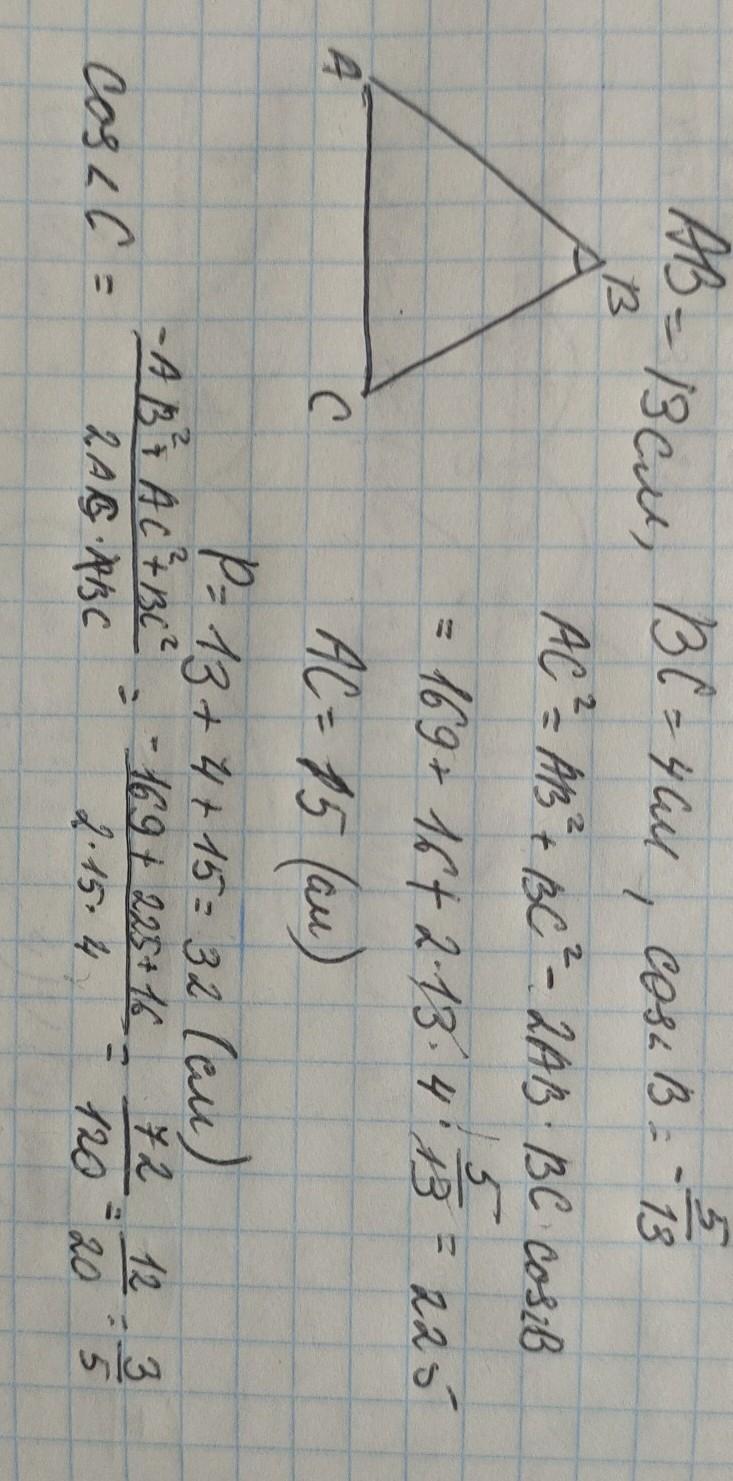 AB = 13 см, BC = 4 см, cos∠B = -5/13
B
A
C
AC² = AB² + BC² - 2AB · BC · cos∠B
= 169 + 16 + 2·13·4·5/13 = 225
AC = 15 (см)
P = 13 + 4 + 15 = 32 (см)
cos∠C = (-AB² + AC² + BC²)/(2AC · BC) = (-169 + 225 + 16)/(2·15·4) = 72/120 = 12/20 = 3/5